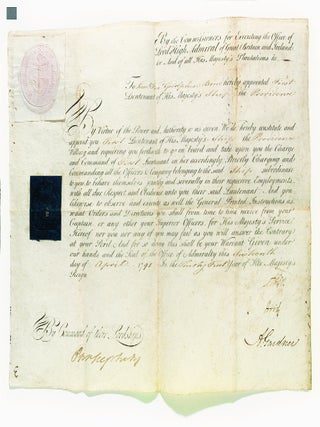 By the Commissioners for Executing the Office of
Lord High Admiral of Great Britain and Ireland
&c And of all His Majesty's Plantations &c
To hereby appointed First
Lieutenant of His Majesty's Ship the
By Virtue of the Power and Authority to us given We do hereby constitute and
appoint you First Lieutenant of His Majesty's Ship the
Willing and requiring you forthwith to go on board and take upon you the Charge
and Command of First Lieutenant in her accordingly. Strictly Charging and
Commanding all the Officers & Company belonging to the said Ship subordinate
to you to behave themselves jointly and severally in their respective Employments
with all due Respect and Obedience unto you their said Lieutenant And you
likewise to observe and execute as well the General Printed Instructions as
what Orders and Directions you shall from time to time receive from your
Captain or any other your Superior Officers for His Majesty's Service
Hereof nor you nor any of you may fail as you will answer the Contrary
at your Peril And for so doing this shall be your Warrant Given under
our hands and the Seal of the Office of Admiralty this
day of April 1791 In the Thirty First Year of His Majesty's
Reign
By Command of their Lordships
A Gardner
Php Stephens